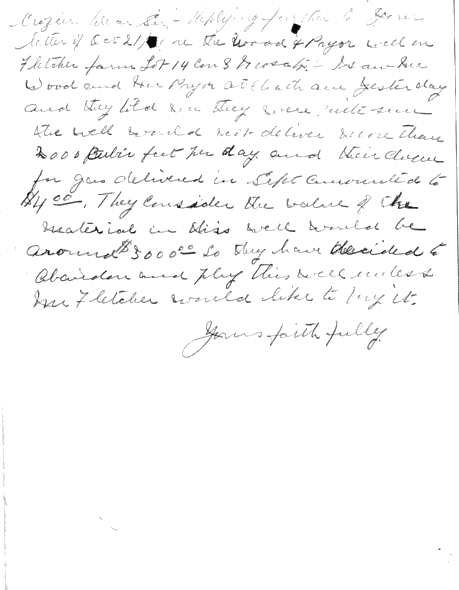 Crozier Dear Sir - Replying further to your
letter of Oct 21/ re the Wood & Pryor well on
Fletcher farm Lot 14 Con 8 Mosa Tp - I saw Mr
Wood and Mr Pryor at Chatham yesterday
and they told me they were quite sure
the well would not deliver more than
3000 Cubic feet per day and their cheque
for gas delivered in Sept amounted to
$4.00. They consider the value of the
material in this well would be
around $3000.00 so they have decided to
abandon and plug this well unless
Mr Fletcher would like to buy it.
Yours faithfully